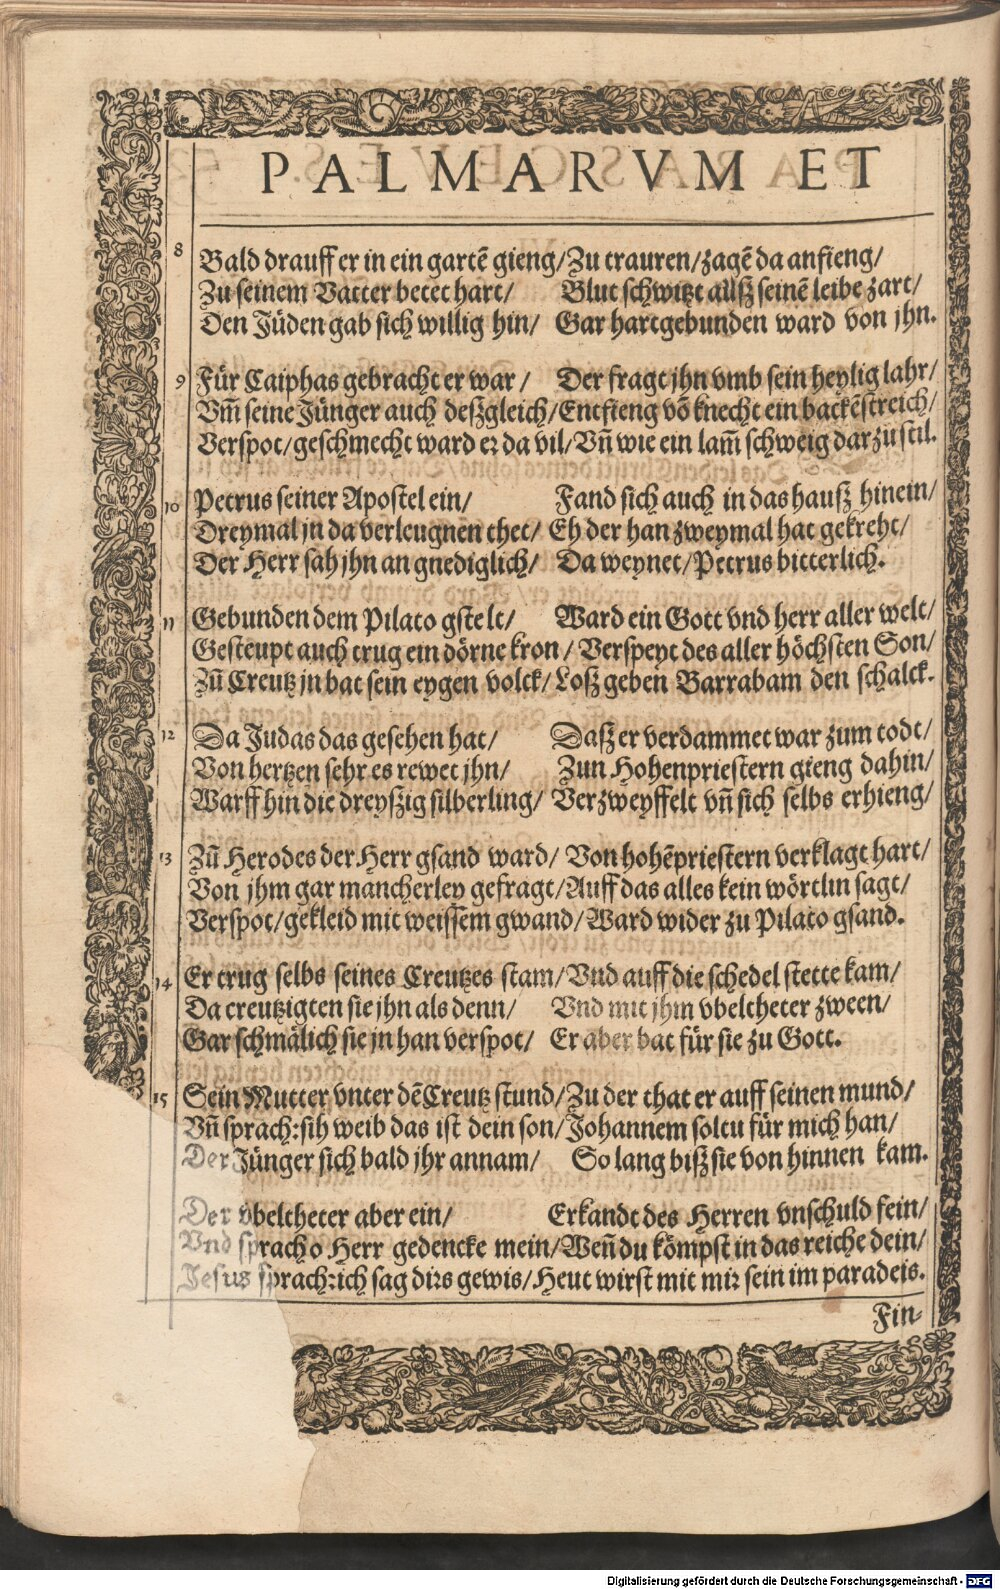 PALMARVM ET
8 Bald drauff er in ein gartē gieng/ Zu trauren/ zagē da anfieng/
Zu seinem Vatter betet hart/ Blut schwitzt außz seinē leibe zart/
Den Jüden gab sich willig hin/ Gar hart gebunden ward von jhn.
9 Für Caiphas gebracht er war/ Der fragt jhn vmb sein heylig lahr/
Vm̄ seine Jünger auch deßzgleich/ Entfieng vō knecht ein backēstreich/
Verspot/ geschmecht ward er da vil/ Vn̄ wie ein lam̄ schweig darzu stil.
10 Petrus seiner Apostel ein/ Fand sich auch in das haußz hinein/
Dreymal jn da verleugnen thet/ Eh der han zweymal hat gekreht/
Der Herr sah jhn an gnediglich/ Da weynet/ Petrus bitterlich.
11 Gebunden dem Pilato gstelt/ Ward ein Gott vnd herr aller welt/
Gesteupt auch trug ein dörne kron/ Verspeyt des aller höchsten Son/
Zū Creutz jn bat sein eygen volck/ Loßz geben Barrabam den schalck.
12 Da Judas das gesehen hat/ Daßz er verdammet war zum todt/
Von hertzen sehr es rewet jhn/ Zun Hohenpriestern gieng dahin/
Warff hin die dreyßzig silberling/ Verzweyffelt vn̄ sich selbs erhieng/
13 Zū Herodes der Herr gsand ward/ Von hohēpriestern verklagt hart/
Von jhm gar mancherley gefragt/ Auff das alles kein wörtlin sagt/
Verspot/ gekleid mit weissem gwand/ Ward wider zu Pilato gsand.
14 Er trug selbs seines Creutzes stam/ Vnd auff die schedel stette kam/
Da creutzigten sie jhn als denn/ Vnd mit jhm vbeltheter zween/
Gar schmälich sie jn han verspot/ Er aber bat für sie zu Gott.
15 Sein Mutter vnter dē Creutz stund/ Zu der that er auff seinen mund/
Vn̄ sprach: sih weib das ist dein son/ Johannem soltu für mich han/
Der Jünger sich bald jhr annam/ So lang bißz sie von hinnen kam.
Der vbeltheter aber ein/ Erkandt des Herren vnschuld fein/
Vnd sprach o Herr gedencke mein/ Wen̄ du kömpst in das reiche dein/
Jesus sprach: ich sag dirs gewis/ Heut wirst mit mir sein im paradeis.
Fin-
Digitalisierung gefördert durch die Deutsche Forschungsgemeinschaft - DFG